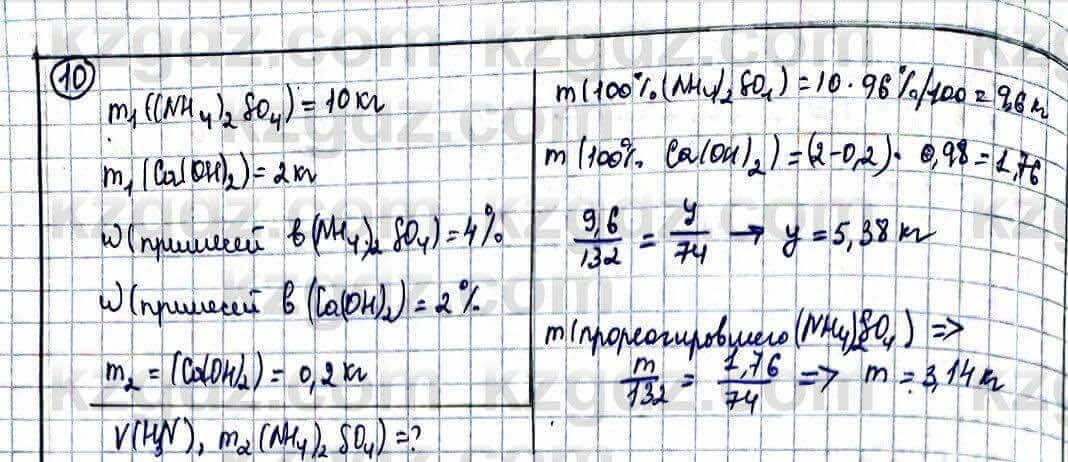 10
m₁((NH₄)₂SO₄) = 10 кг
m₁(Ca(OH)₂) = 2 кг
W(примесей в (NH₄)₂SO₄) = 4%
W(примесей в (Ca(OH)₂) = 2%
m₂ = (Ca(OH)₂) = 0,2 кг
V(H₃N), m₂(NH₄)₂SO₄) = ?
m(100%(NH₄)₂SO₄) = 10 · 96%/100 = 9,6 кг
m(100% Ca(OH)₂) = (2-0,2) · 0,98 = 1,76
9,6/132 = y/74 → y = 5,38 кг
m(прореагировшего (NH₄)₂SO₄) =>
m/132 = 1,76/74 => m = 3,14 кг
kzgdz.com